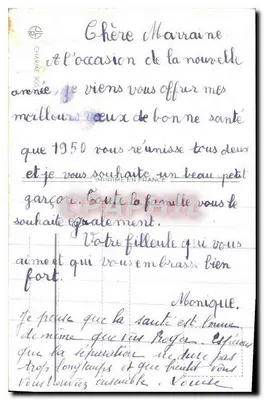 Chère Marraine
A l'occasion de la nouvelle
année, je viens vous offrir mes
meilleurs vœux de bonne santé
que 1950 vous réunisse tous deux
et je vous souhaite un beau petit
IMPRIMÉ EN FRANCE
garçon. Toute la famille vous le
souhaite également.
Votre filleule qui vous
aime et qui vous embrasse bien
fort.
Monique.
Je pense que la santé est bonne
de même que Roger. Espérons
que la séparation ne dure pas
trop longtemps et que bientôt vous
vous ensemble. Louise